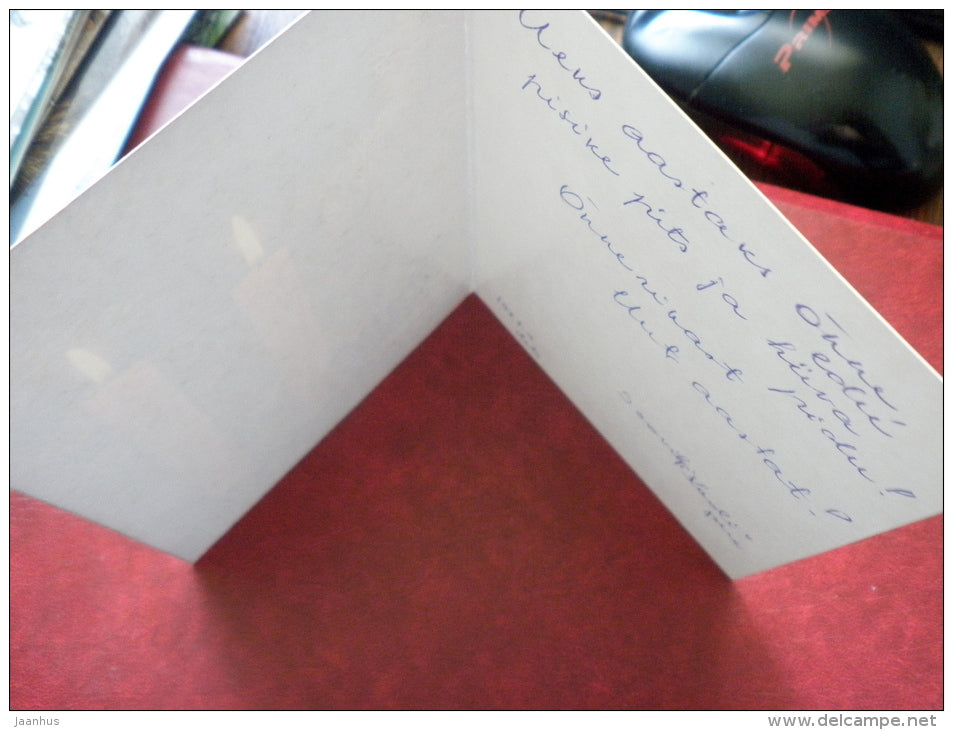 Ueus aastaks õnne, edu!
pisike pits ja hüva pidu!
Õnnerikast
Uut aastat!
PRiiM
Jaanhus
www.delcampe.net